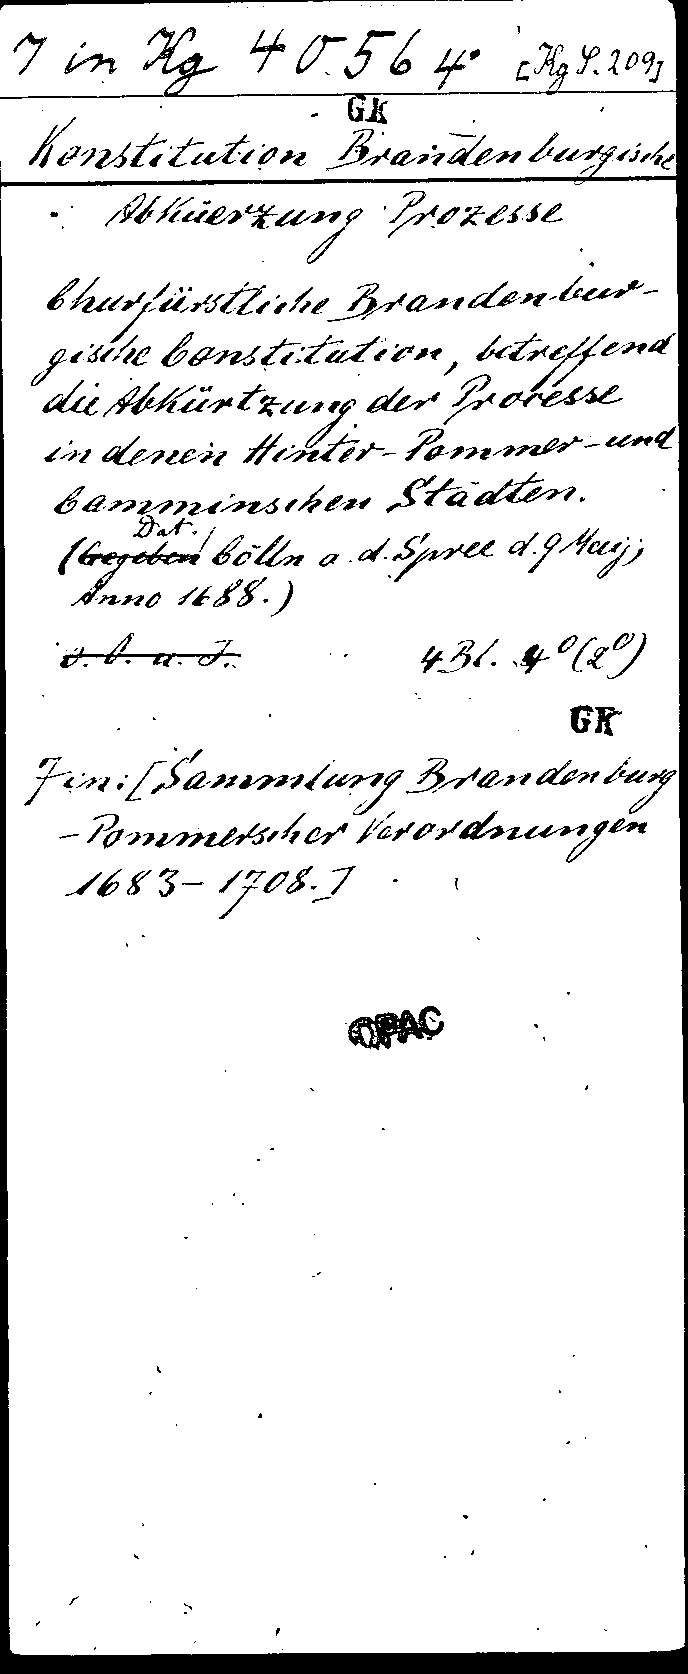 7 in Kg 4056 4° [Kg S. 209]
GK
Konstitution Brandenburgische
Abkuerzung Prozesse
Churfürstliche Brandenbur-
gische Constitution, betreffend
die Abkürtzung der Processe
in denen Hinter-Pommer-und
Camminschen Städten.
Dat.
(Gegeben Cölln a. d. Spree d. 9 Maij;
Anno 1688.)
o. O. u. J. 4 Bl. 4° (2°)
GK
7 in: [Sammlung Brandenburg
-Pommerscher Verordnungen
1683-1708.]
OPAC